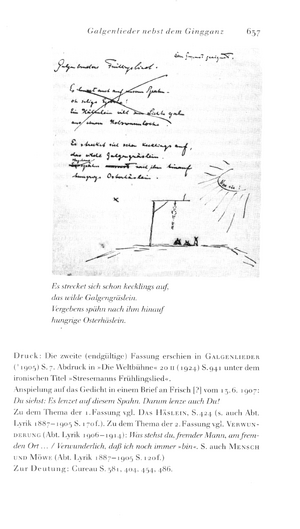 Galgenlieder nebst dem Gingganz 657
Galgenbruders Frühlingslied.
Es lenzet auch auf unserm Spahn,
Ein Hälmlein will im Lichte gahn
aus einem Holzwurmloch
das wilde Galgengräslein.
hungrige Osterhäslein.
Es strecket sich schon kecklings auf,
das wilde Galgengräslein.
Vergebens spähn nach ihm hinauf
hungrige Osterhäslein.
Druck: Die zweite (endgültige) Fassung erschien in GALGENLIEDER
(¹1905) S. 7. Abdruck in »Die Weltbühne« 20 II (1924) S. 941 unter dem
ironischen Titel »Stresemanns Frühlingslied«.
Anspielung auf das Gedicht in einem Brief an Frisch [?] vom 15. 6. 1907:
Du siehst: Es lenzet auf diesem Spahn. Darum lenze auch Du!
Zu dem Thema der 1. Fassung vgl. DAS HÄSLEIN, S. 424 (s. auch Abt.
Lyrik 1887–1905 S. 170 f.). Zu dem Thema der 2. Fassung vgl. VERWUN-
DERUNG (Abt. Lyrik 1906–1914): Was stehst du, fremder Mann, am frem-
den Ort ... / Verwunderlich, daß ich noch immer »bin«. S. auch MENSCH
UND MÖWE (Abt. Lyrik 1887–1905 S. 120 f.)
Zur Deutung: Cureau S. 381, 404, 454, 486.